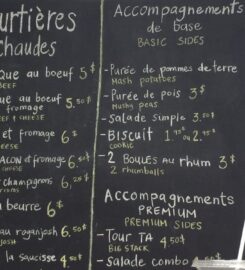 urtières
chaudes
que au boeuf 5$
BEEF
ue au boeuf 5.50$
fromage
BEEF & CHEESE
et fromage 6$
CHEESE
ACON et fromage 6.50$
CHEESE
champignons 6.25$
à beurre 6$
au roganjosh 6.50$
JOSH
la saucisse 4.50$
Accompagnements
de base
BASIC SIDES
- Purée de pommes de terre
Mash potatoes
- Purée de pois 3$
Mushy peas
- Salade simple 3.50$
- Biscuit 1.90 ou 2.95$
COOKIE
- 2 BOULES AU rhum 3$
2 rhumballs
Accompagnements
PREMIUM
PREMIUM SIDES
- Tour TA 4.50$
BIG STACK
- Salade combo 4.50$